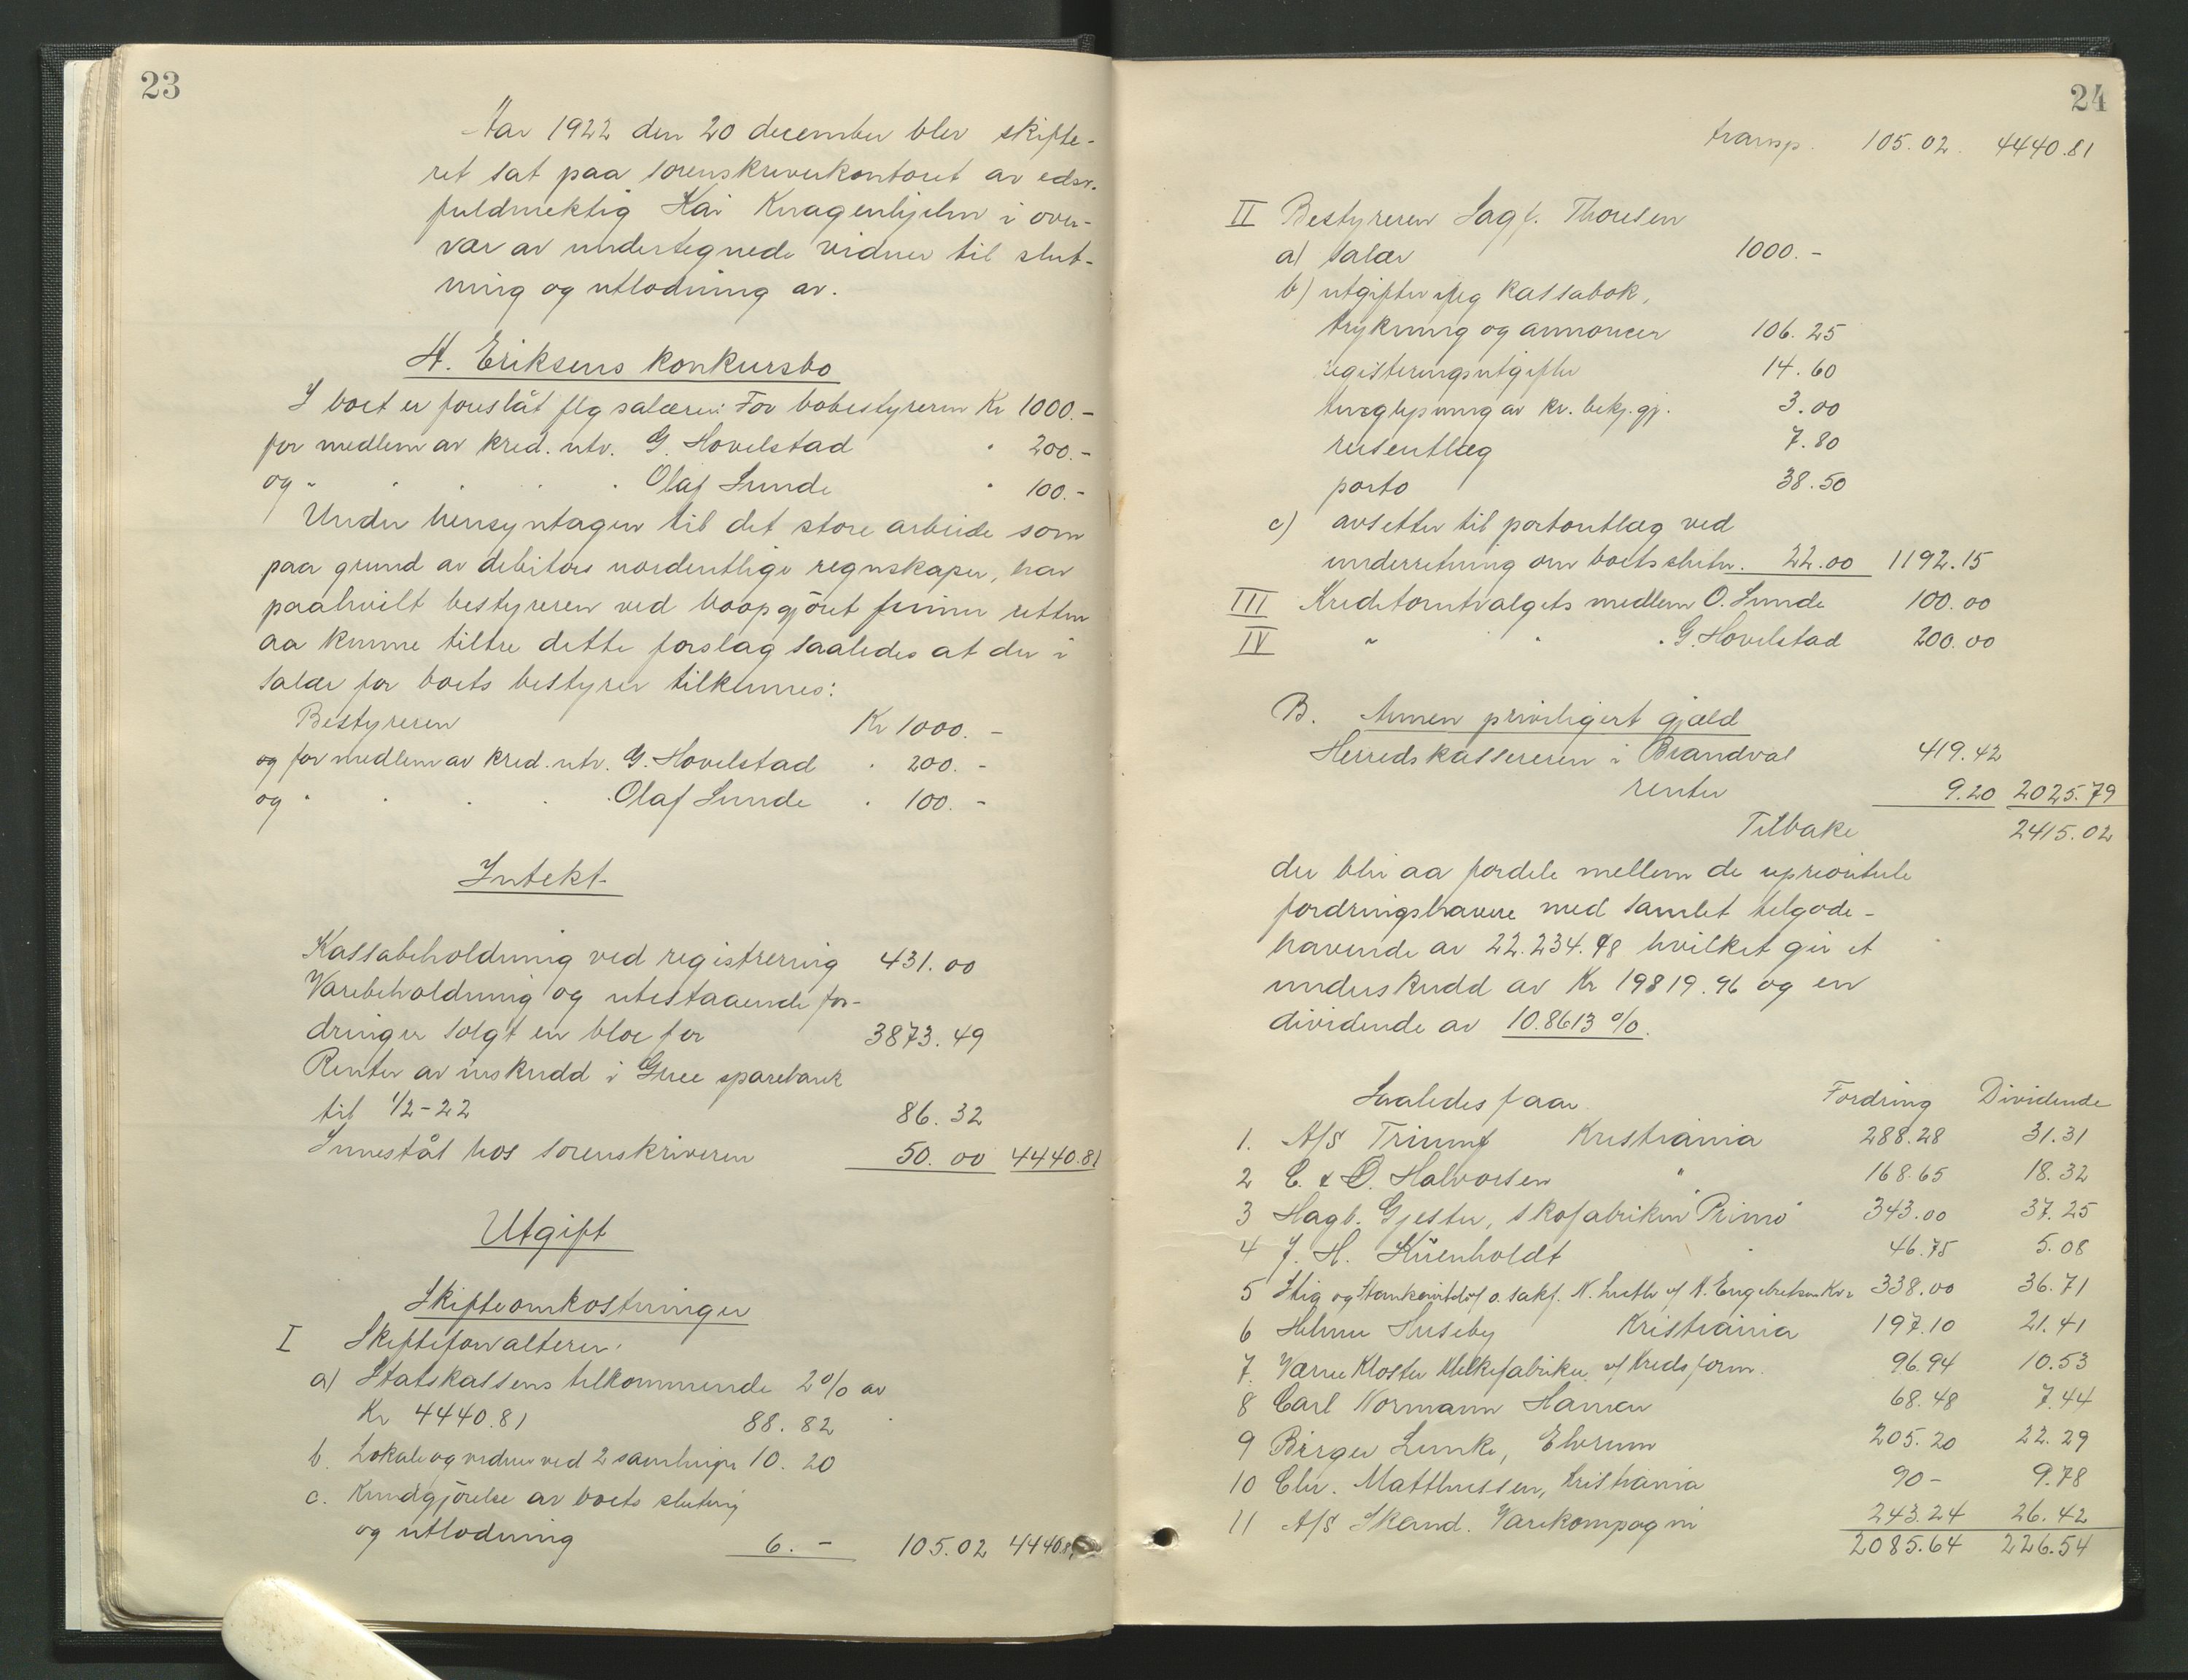 23
Aar 1922 den 20 december blev skifte-
ret sat paa sorenskriverkontoret av edsv.
fuldmektig Kai Knagenhjelm i over-
vær av undertegnede vidner til slut-
ning og utlodning av.
H. Eriksens konkursbo
I boet er foreslåt flg salærer: For bobestyreren Kr 1000.-
for medlem av kred. utv. G. Hovelstad " 200.-
og " " " " " Olaf Lunde " 100.-
Under hensyntagen til det store arbeide som
paa grund av debitors uordentlige regnskaper, har
paahvilt bestyreren ved boopgjöret finner retten
aa kunne tiltre dette forslag saaledes at der i
salær for boets bestyrer tilkjennes:
Bestyreren Kr 1000. -
og for medlem av kred. utv. G. Hovelstad " 200. -
og " " " " " Olaf Lunde " 100. -
Intekt
Kassabeholdning ved registrering 431.00
Varebeholdning og utestaaende for-
dringer solgt en bloc for 3873.49
Renter av inskudd i Grue sparebank
til 1/2-22 86.32
Innestål hos sorenskriveren 50.00 4440.81
Utgift
Skifteomkostninger
I Skifteforvalteren:
a) Statskassens tilkommende 2% av
Kr 4440.81 88.82
b. Lokale og vidner ved 2 samlinger 10.20
c. Kundgjörelse av boets slutning
og utlodning 6. - 105.02 4440.81
24
transp. 105.02 4440.81
II Bestyreren Sagf. Thoresen
a) salær 1000. -
b) utgifter iflg kassabok,
trykning og annoncer 106.25
registeringsutgifter 14.60
tinglysning av kr. bekj.gj. 3.00
reiseutlæg 7.80
porto 38.50
c) avsetter til portoutlæg ved
underretning om boets slutn. 22.00 1192.15
III Kreditorutvalgets medlem O. Lunde 100.00
IV " " " G. Hovelstad 200.00
B. Annen priviligert gjæld
Herredskassereren i Brandval 419.42
renter 9.20 2025.79
Tilbake 2415.02
der blir aa fordele mellem de uprioritete
fordringshavere med samlet tilgode-
havende av 22.234.98 hvilket gir et
underskudd av Kr 19819.96 og en
dividende av 10.8613 %.
Saaledes faar Fordring Dividende
1. A/S Triumf Kristiania 288.28 31.31
2 C. & O. Halvorsen " 168.65 18.32
3 Hagb. Gjester, skofabriken "Primo" 343.00 37.25
4 J. H. Küenholdt " 46.75 5.08
5 Stig og o. sakf. N. v/ A. Engebretsen Kr.a 338.00 36.71
6 Helmer Huseby Kristiania 197.10 21.41
7. Værne Kloster Melkefabriker v/ Kredsform. 96.94 10.53
8 Carl Normann Hamar 68.48 7.44
9 Birger Lunke, Elverum 205.20 22.29
10 Chr. Matthiessen, Kristiania 90- 9.78
11 A/S Skand. Varekompagni 243.24 26.42
2085.64 226.54